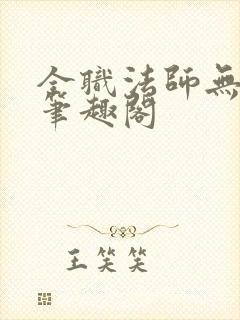 全職法師無
筆趣閣
王笑笑